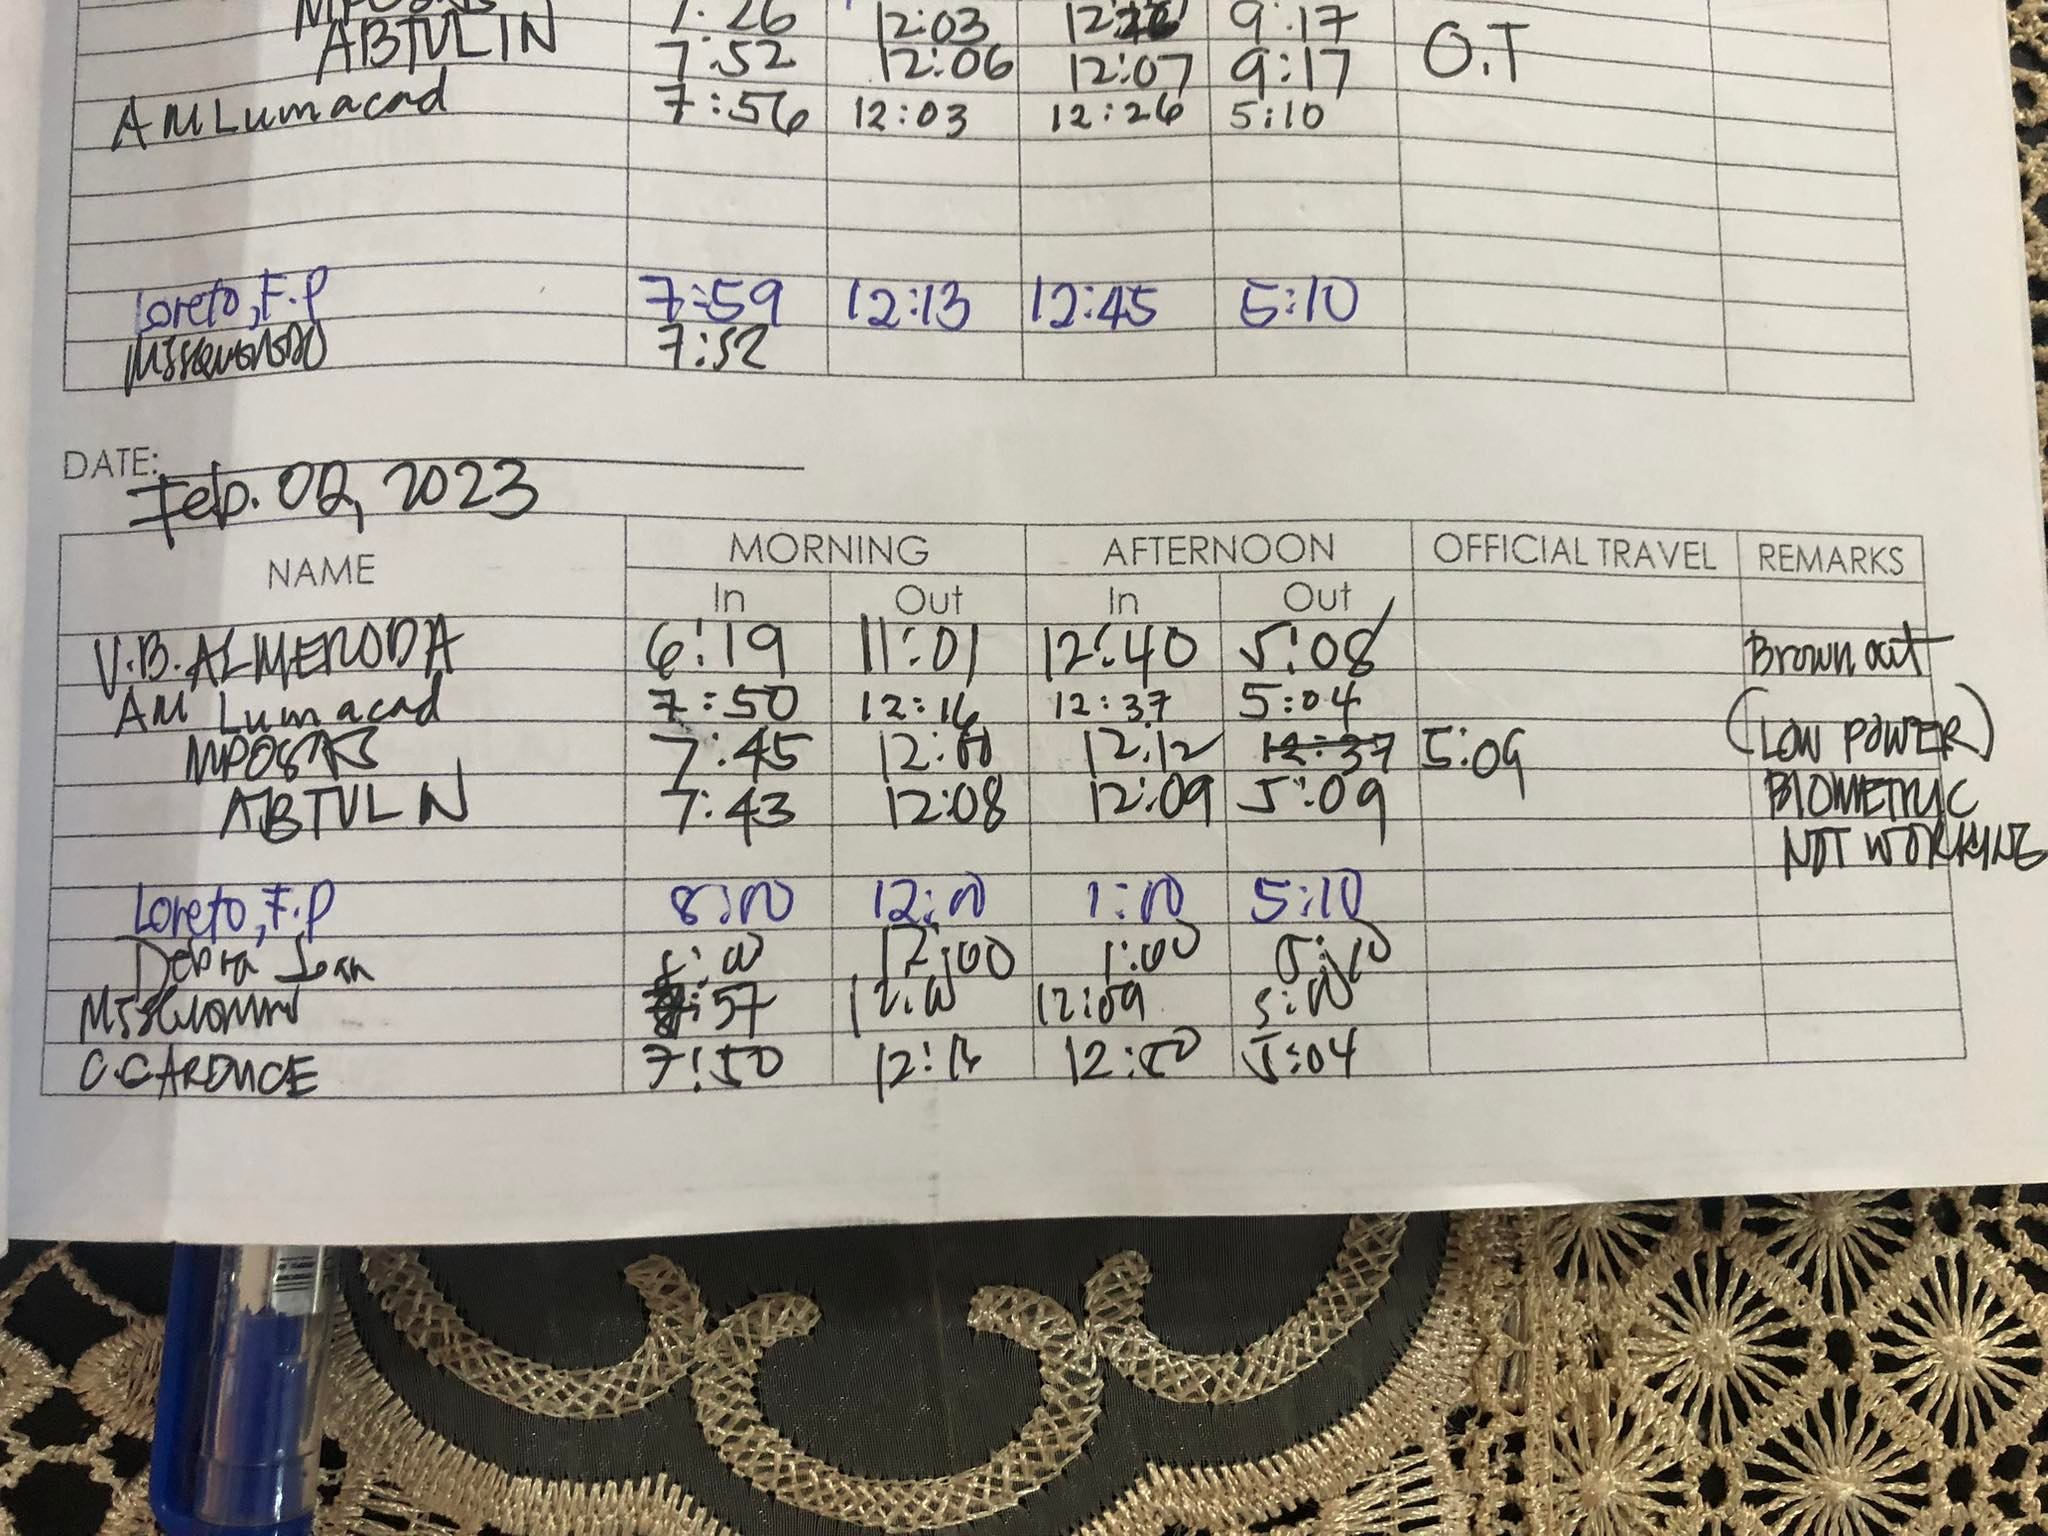 7:26 12:03 9:17
ABTULIN 7:52 12:06 12:07 9:17 O.T
AM Lumacad 7:56 12:03 12:26 5:10
Loreto, F.P 7:59 12:13 12:45 5:10
7:52
DATE: Feb. 02, 2023
NAME MORNING AFTERNOON OFFICIAL TRAVEL REMARKS
In Out In Out
V.B. ALMERODA 6:19 11:01 12:40 5:08 Brown out
AM Lumacad 7:50 12:16 12:37 5:04
7:45 12:12 12:37 5:09 (LOW POWER)
ABTULIN 7:43 12:08 12:09 5:09 BIOMETRIC
NOT WORKING
Loreto, F.P 8:00 12:00 1:00 5:10
Debra Joan 8:00 12:00 1:00 5:10
:57 12:00 12:09 5:00
7:50 12:16 12:50 5:04